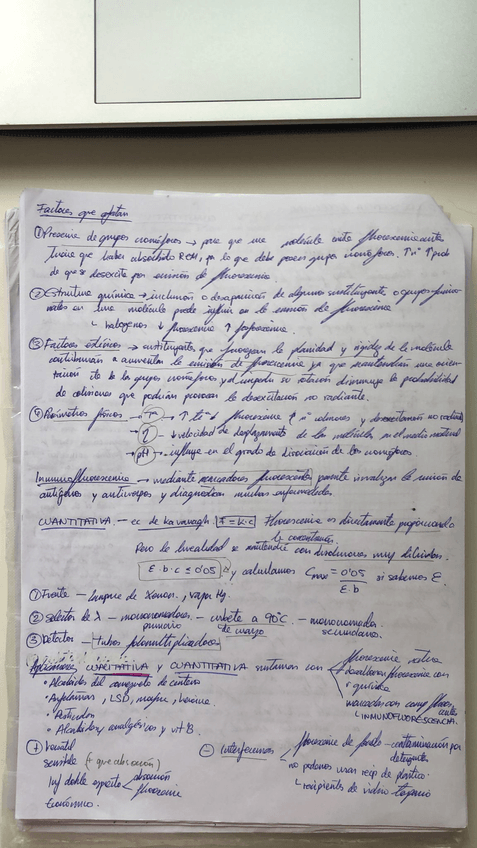 Factores que afectan
① Presencia de grupos cromóforos → para que una molécula emita fluorescencia antes
tiene que haber absorbido REM, por lo que debe poseer grupos cromóforos. ↑ nº ↑ prob
de que se desexcite por emisión de fluorescencia.
② Estructura química → inclusión o desaparición de algunos sustituyentes o grupos funcio-
nales en una molécula puede influir en la emisión de fluorescencia
↳ halógenos ↓ fluorescencia ↑ fosforescencia.
③ Factores estéricos → sustituyentes que favorezcan la planidad y rigidez de la molécula
contribuirán a aumentar la emisión de fluorescencia ya que mantendrán una orien-
tación de los grupos cromóforos y al impedir su rotación disminuye la probabilidad
de colisiones que podrían provocar la desexcitación no radiante.
④ Parámetros físicos → Tª → ↑ Tª ↓ fluorescencia ↑ nº colisiones y desexcitación no radiante
η → ↓ velocidad de desplazamiento de las moléculas en el medio material
pH → influye en el grado de disociación de los cromóforos.
Inmunofluorescencia → mediante marcadores fluorescentes permite visualizar la unión de
antígenos y anticuerpos y diagnosticar muchas enfermedades.
CUANTITATIVA - ec de Kavanagh F = K·C Fluorescencia es directamente proporcional
la concentración.
Pero la linealidad se mantendrá con disoluciones muy diluidas.
ε·b·c ≤ 0'05 y calculamos Cmax = 0'05 / ε·b si sabemos ε.
① Fuente - lámpara de Xenon, vapor Hg.
② Selector de λ - monocromadores primario - cubeta a 90°C de cuarzo - monocromador secundario.
③ Detector - tubos fotomultiplicadores
Aplicaciones CUALITATIVA y CUANTITATIVA sustancias con fluorescencia nativa
química
marcadores con
↳ INMUNOFLUORESCENCIA.
• Alcaloides del cornezuelo de centeno
• Anfetaminas, LSD, morfina, heroína.
• Esteroides
• Alcaloides, analgésicos y vit B.
⊕ Versátil
sensible (+ que absorción)
Inf doble espectro absorción
fluorescencia
económico.
⊖ Interferencias fluorescencia de fondo - contaminación por
detergentes
no podemos usar recip de plástico
↳ recipientes de vidrio